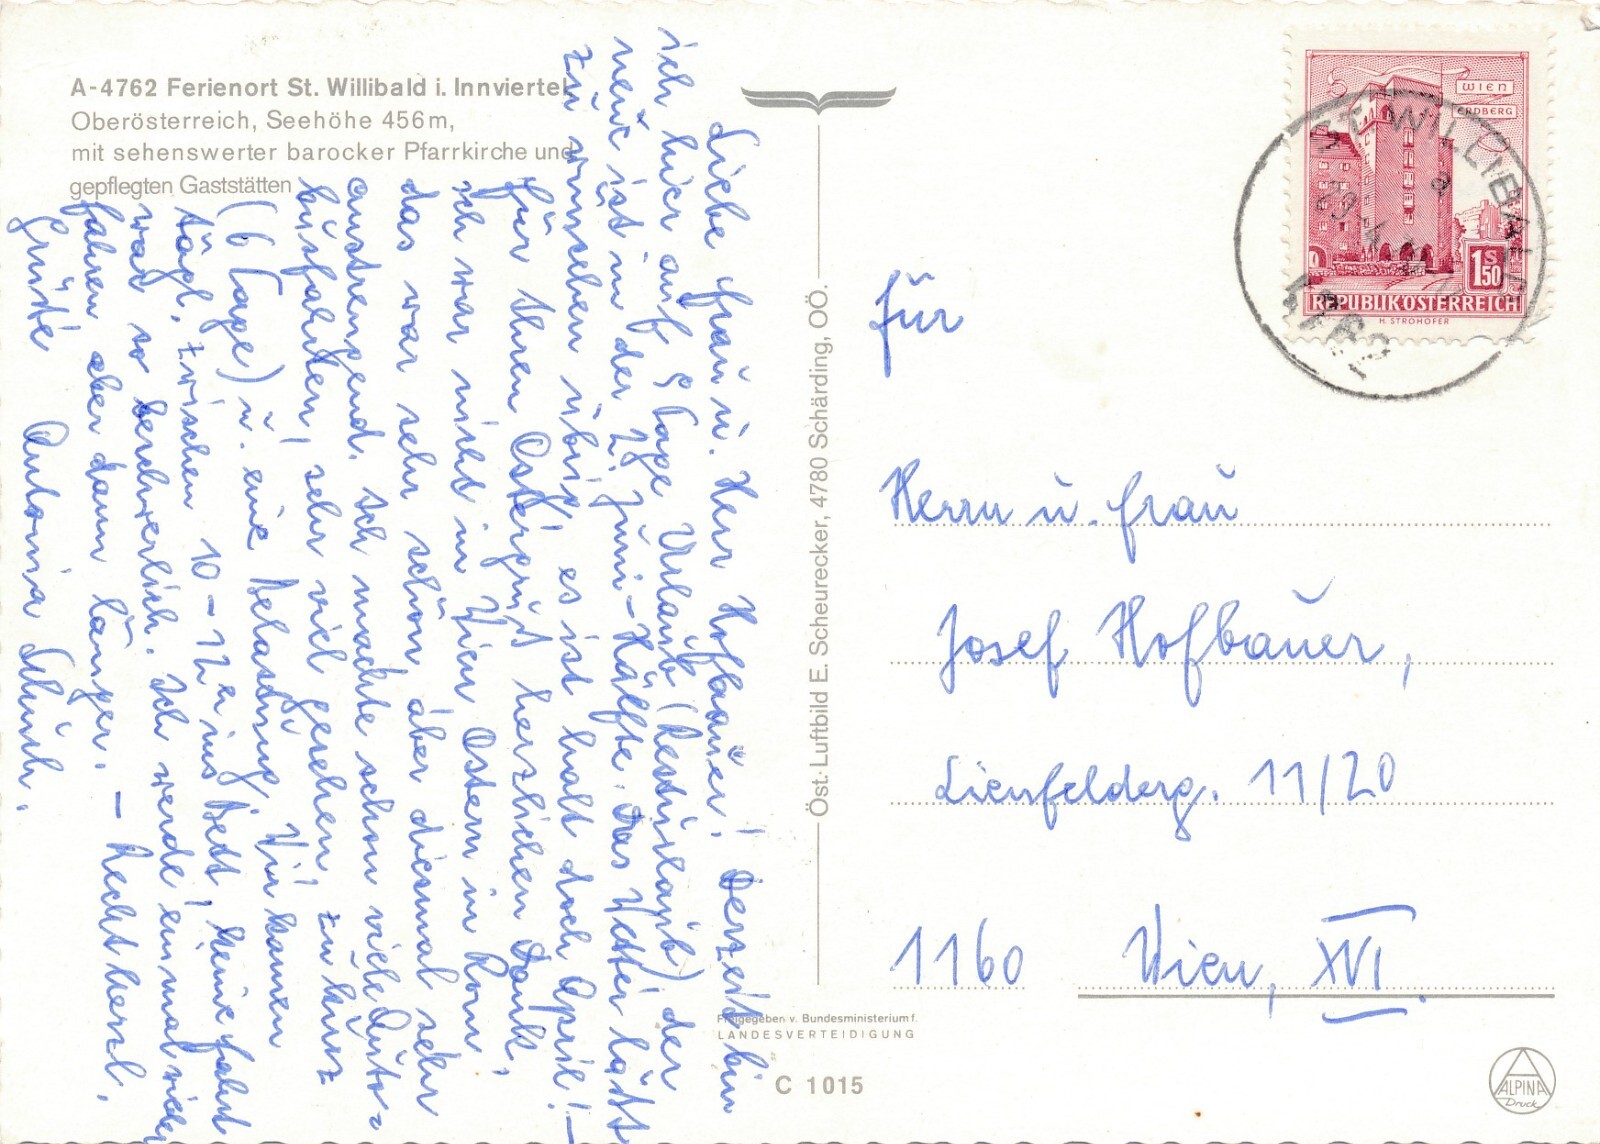 A-4762 Ferienort St. Willibald i. Innviertel
Oberösterreich, Seehöhe 456 m,
mit sehenswerter barocker Pfarrkirche und
gepflegten Gaststätten
Liebe Frau u. Herr Hofbauer! Derzeit bin
ich hier auf 5 Tage Urlaub (Resturlaub) der
neue ist in der 2. Juni-Hälfte. Das Wetter läßt
zu wünschen übrig, es ist halt doch April! -
Für Ihren Ostergruß herzlichen Dank,
ich war nicht in Wien, Ostern in Rom
das war sehr schön, aber diesmal sehr
anstrengend. Ich machte schon viele Auto=
busfahrten, sehr viel gesehen, zu kurz
(6 Tage) u. eine Belastung. Wir kamen
tägl. zwischen 10-12h ins Bett, keine Fahrt
war so beschwerlich. Ich werde einmal wieder
fahren aber dann länger. - Recht herzl.
Grüße Antonia
für
Herrn u. Frau
Josef Hofbauer,
Lienfelderg. 11/20
1160 Wien, XVI.
Öst. Luftbild E. Scheurecker, 4780 Schärding, OÖ.
Freigegeben v. Bundesministerium f.
LANDESVERTEIDIGUNG
C 1015
WIEN
ERDBERG
1 S 50
REPUBLIK ÖSTERREICH
H. STROHOFER
ST. WILLIBALD
a
4762
ALPINA
Druck